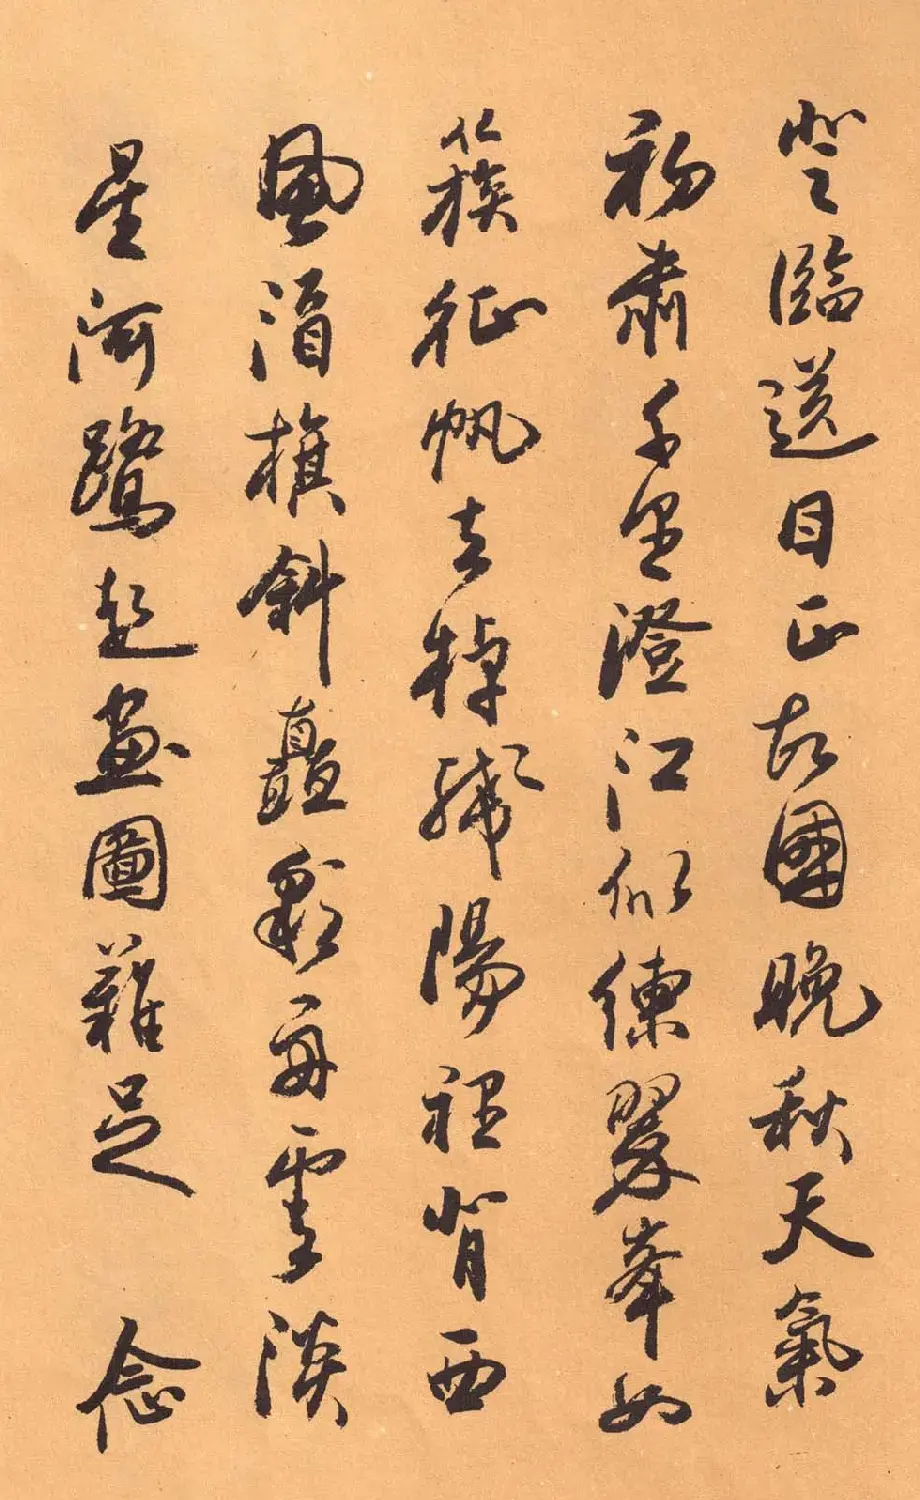 登臨送目正故國晚秋天氣
初肅千里澄江似練翠峯如
簇征帆去棹殘陽裡背西
風酒旗斜矗彩舟雲淡
星河鷺起畫圖難足 念